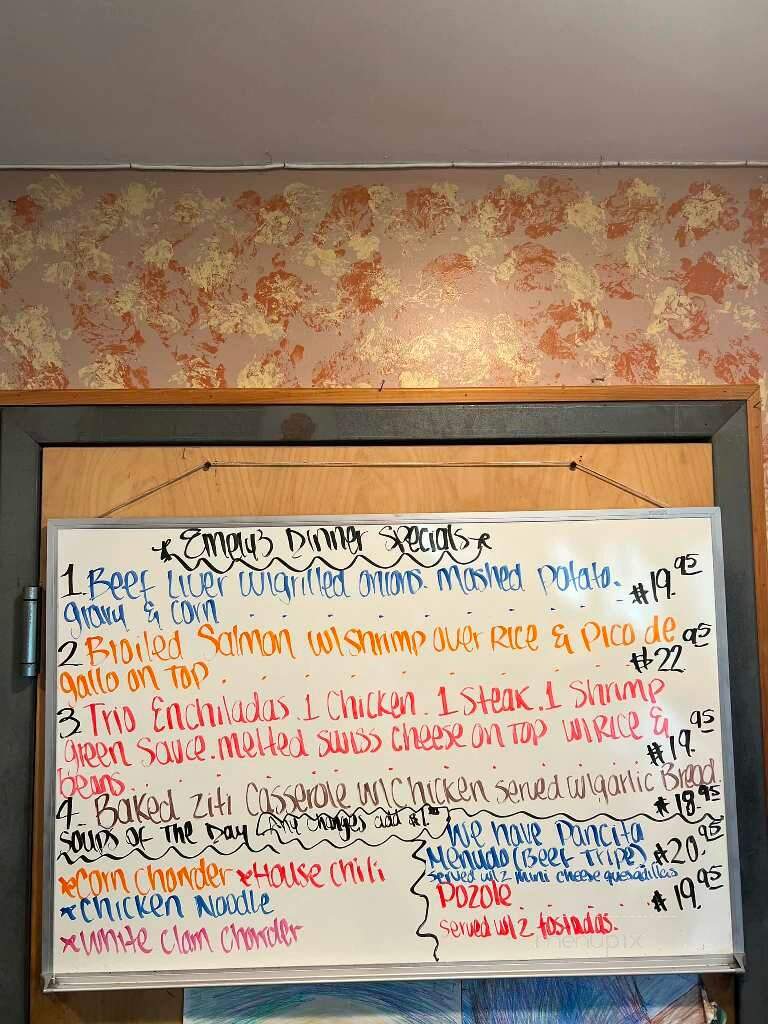 * Emely's Dinner Specials *
1. Beef Liver w/grilled onions. mashed potato.
gravy & corn $19.95
2 Broiled Salmon w/shrimp over Rice & Pico de
gallo on top $22.95
3 Trio Enchiladas. 1 Chicken. 1 Steak. 1 Shrimp
green Sauce. melted swiss cheese on top w/Rice &
beans. $19.95
4. Baked Ziti Casserole w/Chicken served w/garlic Bread.
$18.95
Soups of The Day (Any changes add $1.
*Corn Chowder *House Chili
*Chicken Noodle
*White Clam Chowder
We have Pancita
Menudo (Beef Tripe) $20.95
served w/2 mini cheese quesadillas
Pozole $19.95
served w/2 tostadas.
menupix